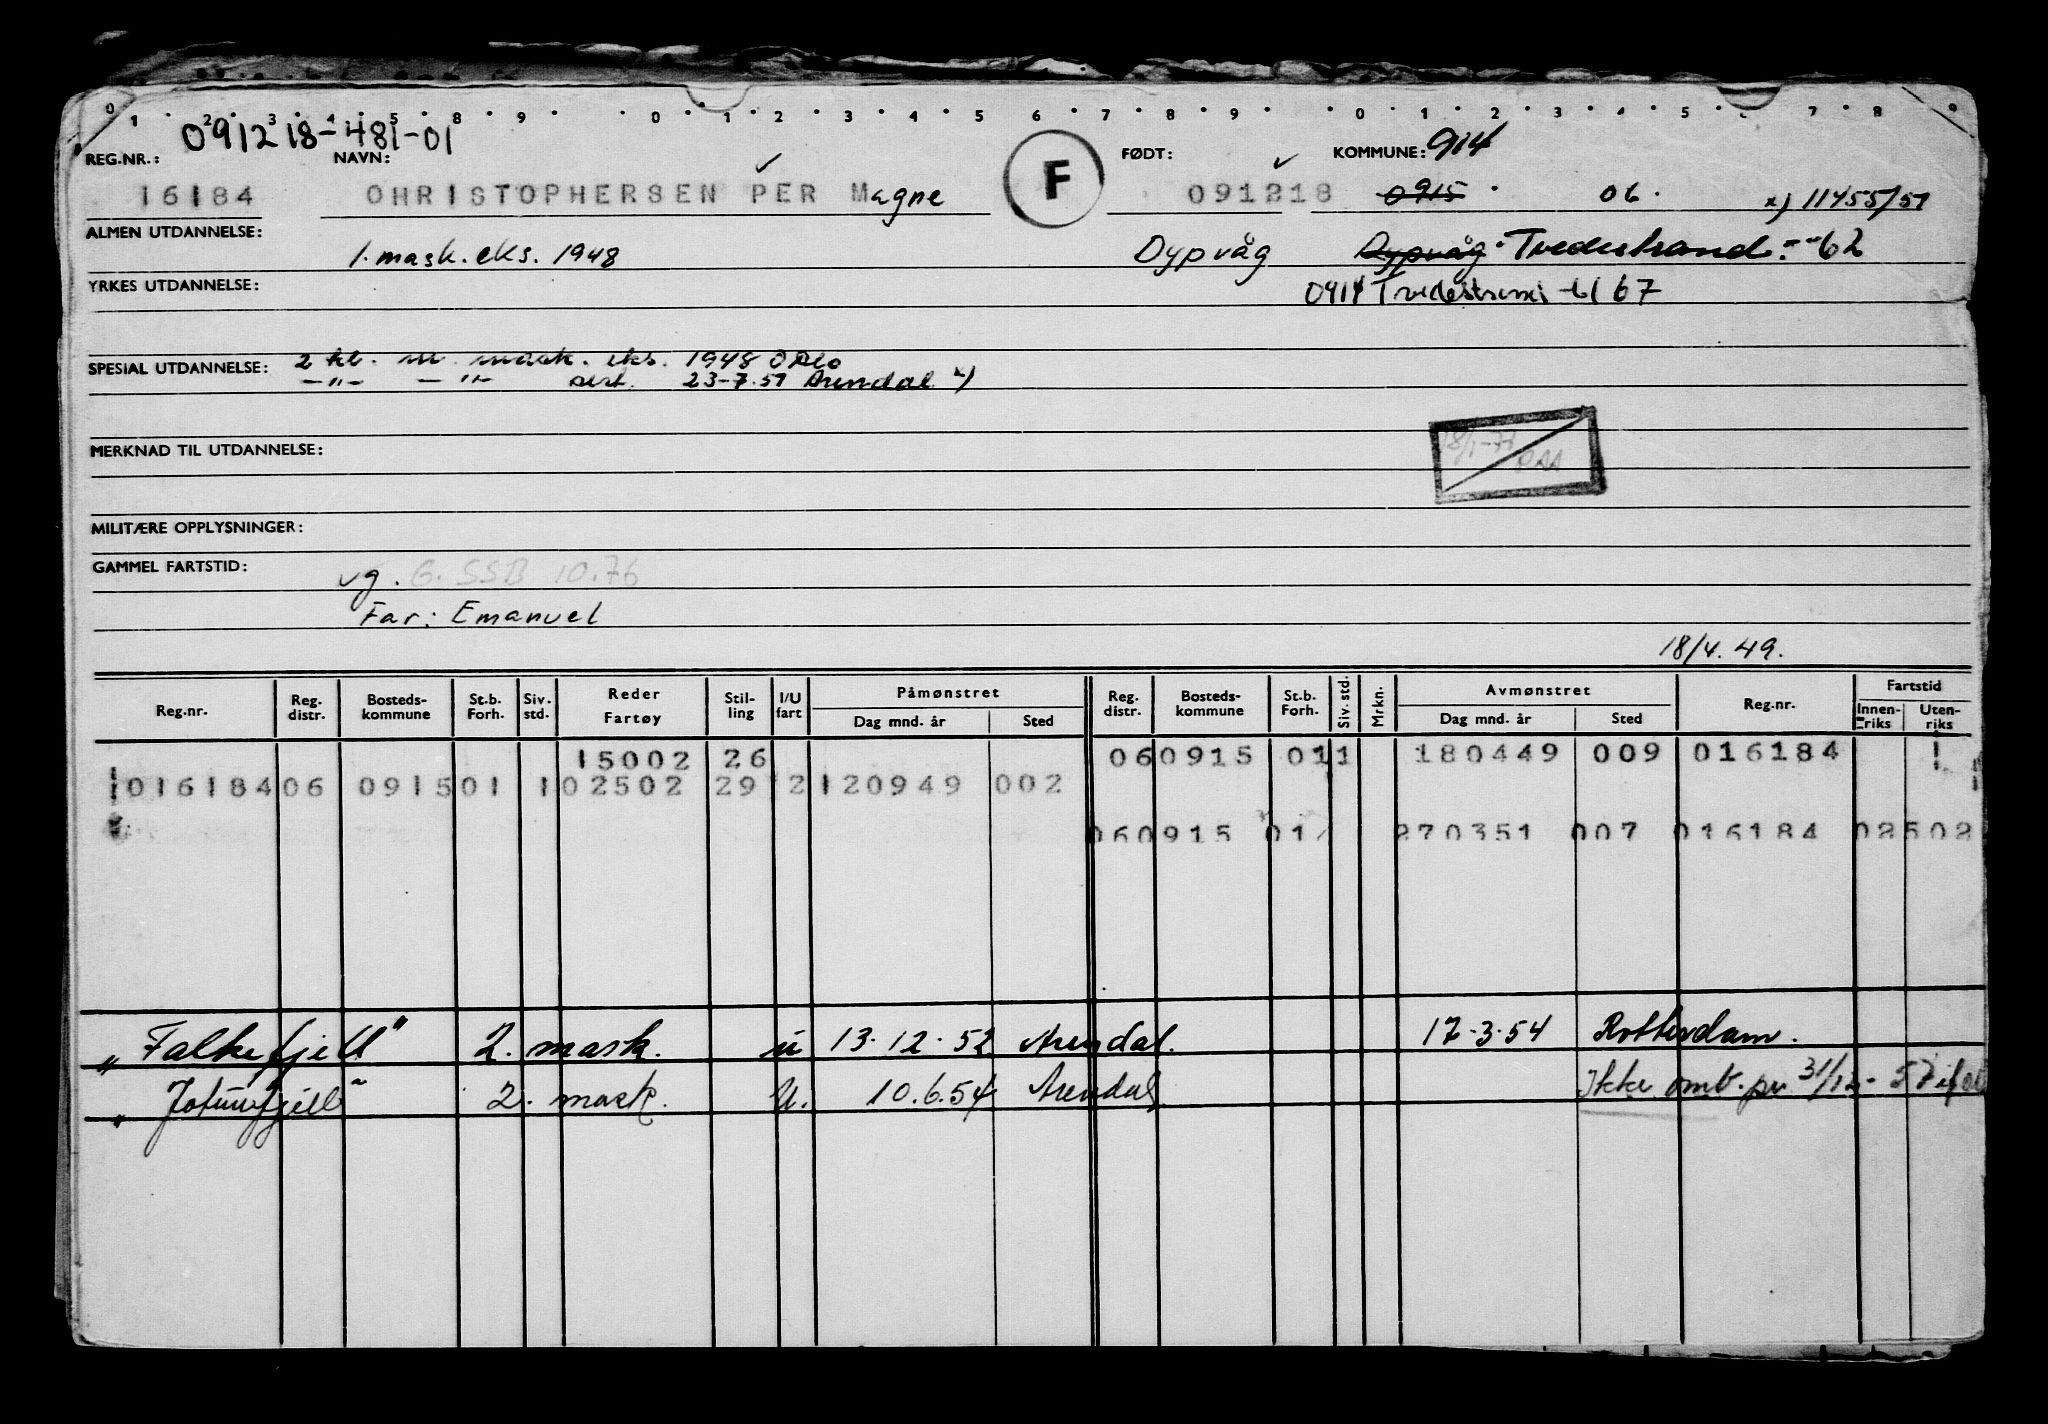 0 1 2 3 4 5 8 9 0 1 2 3 4 5 6 7 8 9 0 1 2 3 4 5 7 8 9
091218-481-01
REG.NR.: NAVN: FØDT: KOMMUNE: 914
16184 OHRISTOPHERSEN PER Magne F 091218 0915 06. x) 11455/51
ALMEN UTDANNELSE: 1. mask. eks. 1948 Dypvåg Dypvåg Tvedestrand -62
YRKES UTDANNELSE: 0914 67
SPESIAL UTDANNELSE: 2 kl. m. mask. eks. 1948 Oslo
-"- -"- sert. 23-7.51 Arendal x)
MERKNAD TIL UTDANNELSE:
18/1-77
MILITÆRE OPPLYSNINGER:
GAMMEL FARTSTID: vg. G. SSB 10.76
Far: Emanuel
18/4.49.
Reg.nr. Reg. distr. Bosteds-kommune St.b. Forh. Siv. std. Reder Fartøy Stil-ling I/U fart Påmønstret Dag mnd. år Sted Reg. distr. Bosteds-kommune St.b. Forh. Siv. std. Mrkn. Avmønstret Dag mnd. år Sted Reg.nr. Fartstid Innen-riks Uten-riks
15002 26 060915 011 180449 009 016184 1
1016184 06 0915 01 102502 29 2 120949 002
060915 01 270351 007 016184 02502
"Falkefjell" 2. mask. u 13.12.52 Arendal. 17.3.54 Rotterdam.
"Jotunfjell" 2. mask. U. 10.6.54 Arendal Ikke omb. pr 31/12-57